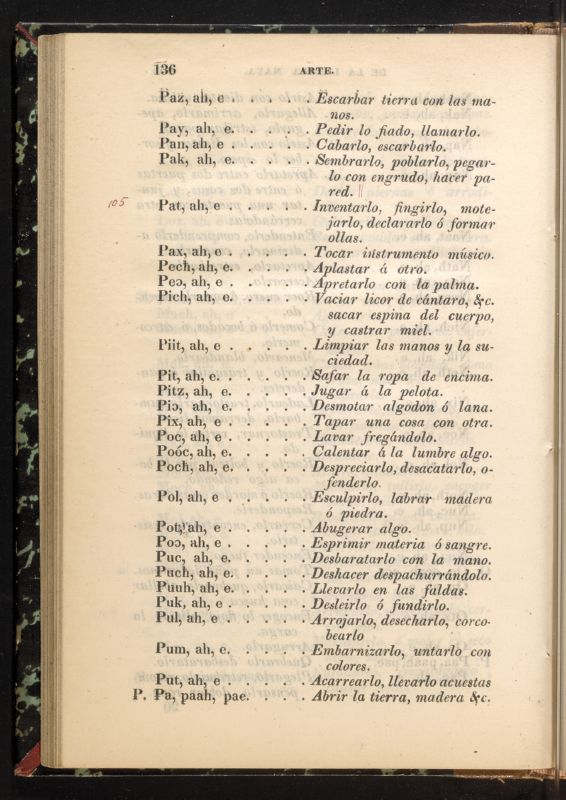 136 ARTE.
Paz, ah, e . . . . . . Escarbar tierra con las ma-
nos.
Pay, ah, e. . . . . . Pedir lo fiado, llamarlo.
Pan, ah, e . . . . . . Cabarlo, escarbarlo.
Pak, ah, e. . . . . . Sembrarlo, poblarlo, pegar-
lo con engrudo, hacer pa-
red.
105 Pat, ah, e . . . . . . Inventarlo, fingirlo, mote-
jarlo, declararlo ó formar
ollas.
Pax, ah, e . . . . . . Tocar instrumento músico.
Pecħ, ah, e. . . . . . Aplastar á otro.
Peɔ, ah, e . . . . . . Apretarlo con la palma.
Picħ, ah, e. . . . . . Vaciar licor de cántaro, &c.
sacar espina del cuerpo,
y castrar miel.
Piit, ah, e . . . . . . Limpiar las manos y la su-
ciedad.
Pit, ah, e. . . . . . . Safar la ropa de encima.
Pitz, ah, e. . . . . . Jugar á la pelota.
Piɔ, ah, e. . . . . . Desmotar algodon ó lana.
Pix, ah, e . . . . . . Tapar una cosa con otra.
Poc, ah, e . . . . . . Lavar fregándolo.
Poóc, ah, e. . . . . . Calentar á la lumbre algo.
Pocħ, ah, e. . . . . . Despreciarlo, desacatarlo, o-
fenderlo.
Pol, ah, e . . . . . . Esculpirlo, labrar madera
ó piedra.
Pot, ah, e . . . . . . Abugerar algo.
Poɔ, ah, e . . . . . . Esprimir materia ó sangre.
Puc, ah, e. . . . . . Desbaratarlo con la mano.
Pucħ, ah, e. . . . . . Deshacer despachurrándolo.
Puuh, ah, e. . . . . . Llevarlo en las faldas.
Puk, ah, e . . . . . . Desleirlo ó fundirlo.
Pul, ah, e . . . . . . Arrojarlo, desecharlo, corco-
bearlo
Pum, ah, e. . . . . . Embarnizarlo, untarlo con
colores.
Put, ah, e . . . . . . Acarrearlo, llevarlo acuestas
P. Pa, paah, pae. . . . . Abrir la tierra, madera &c.